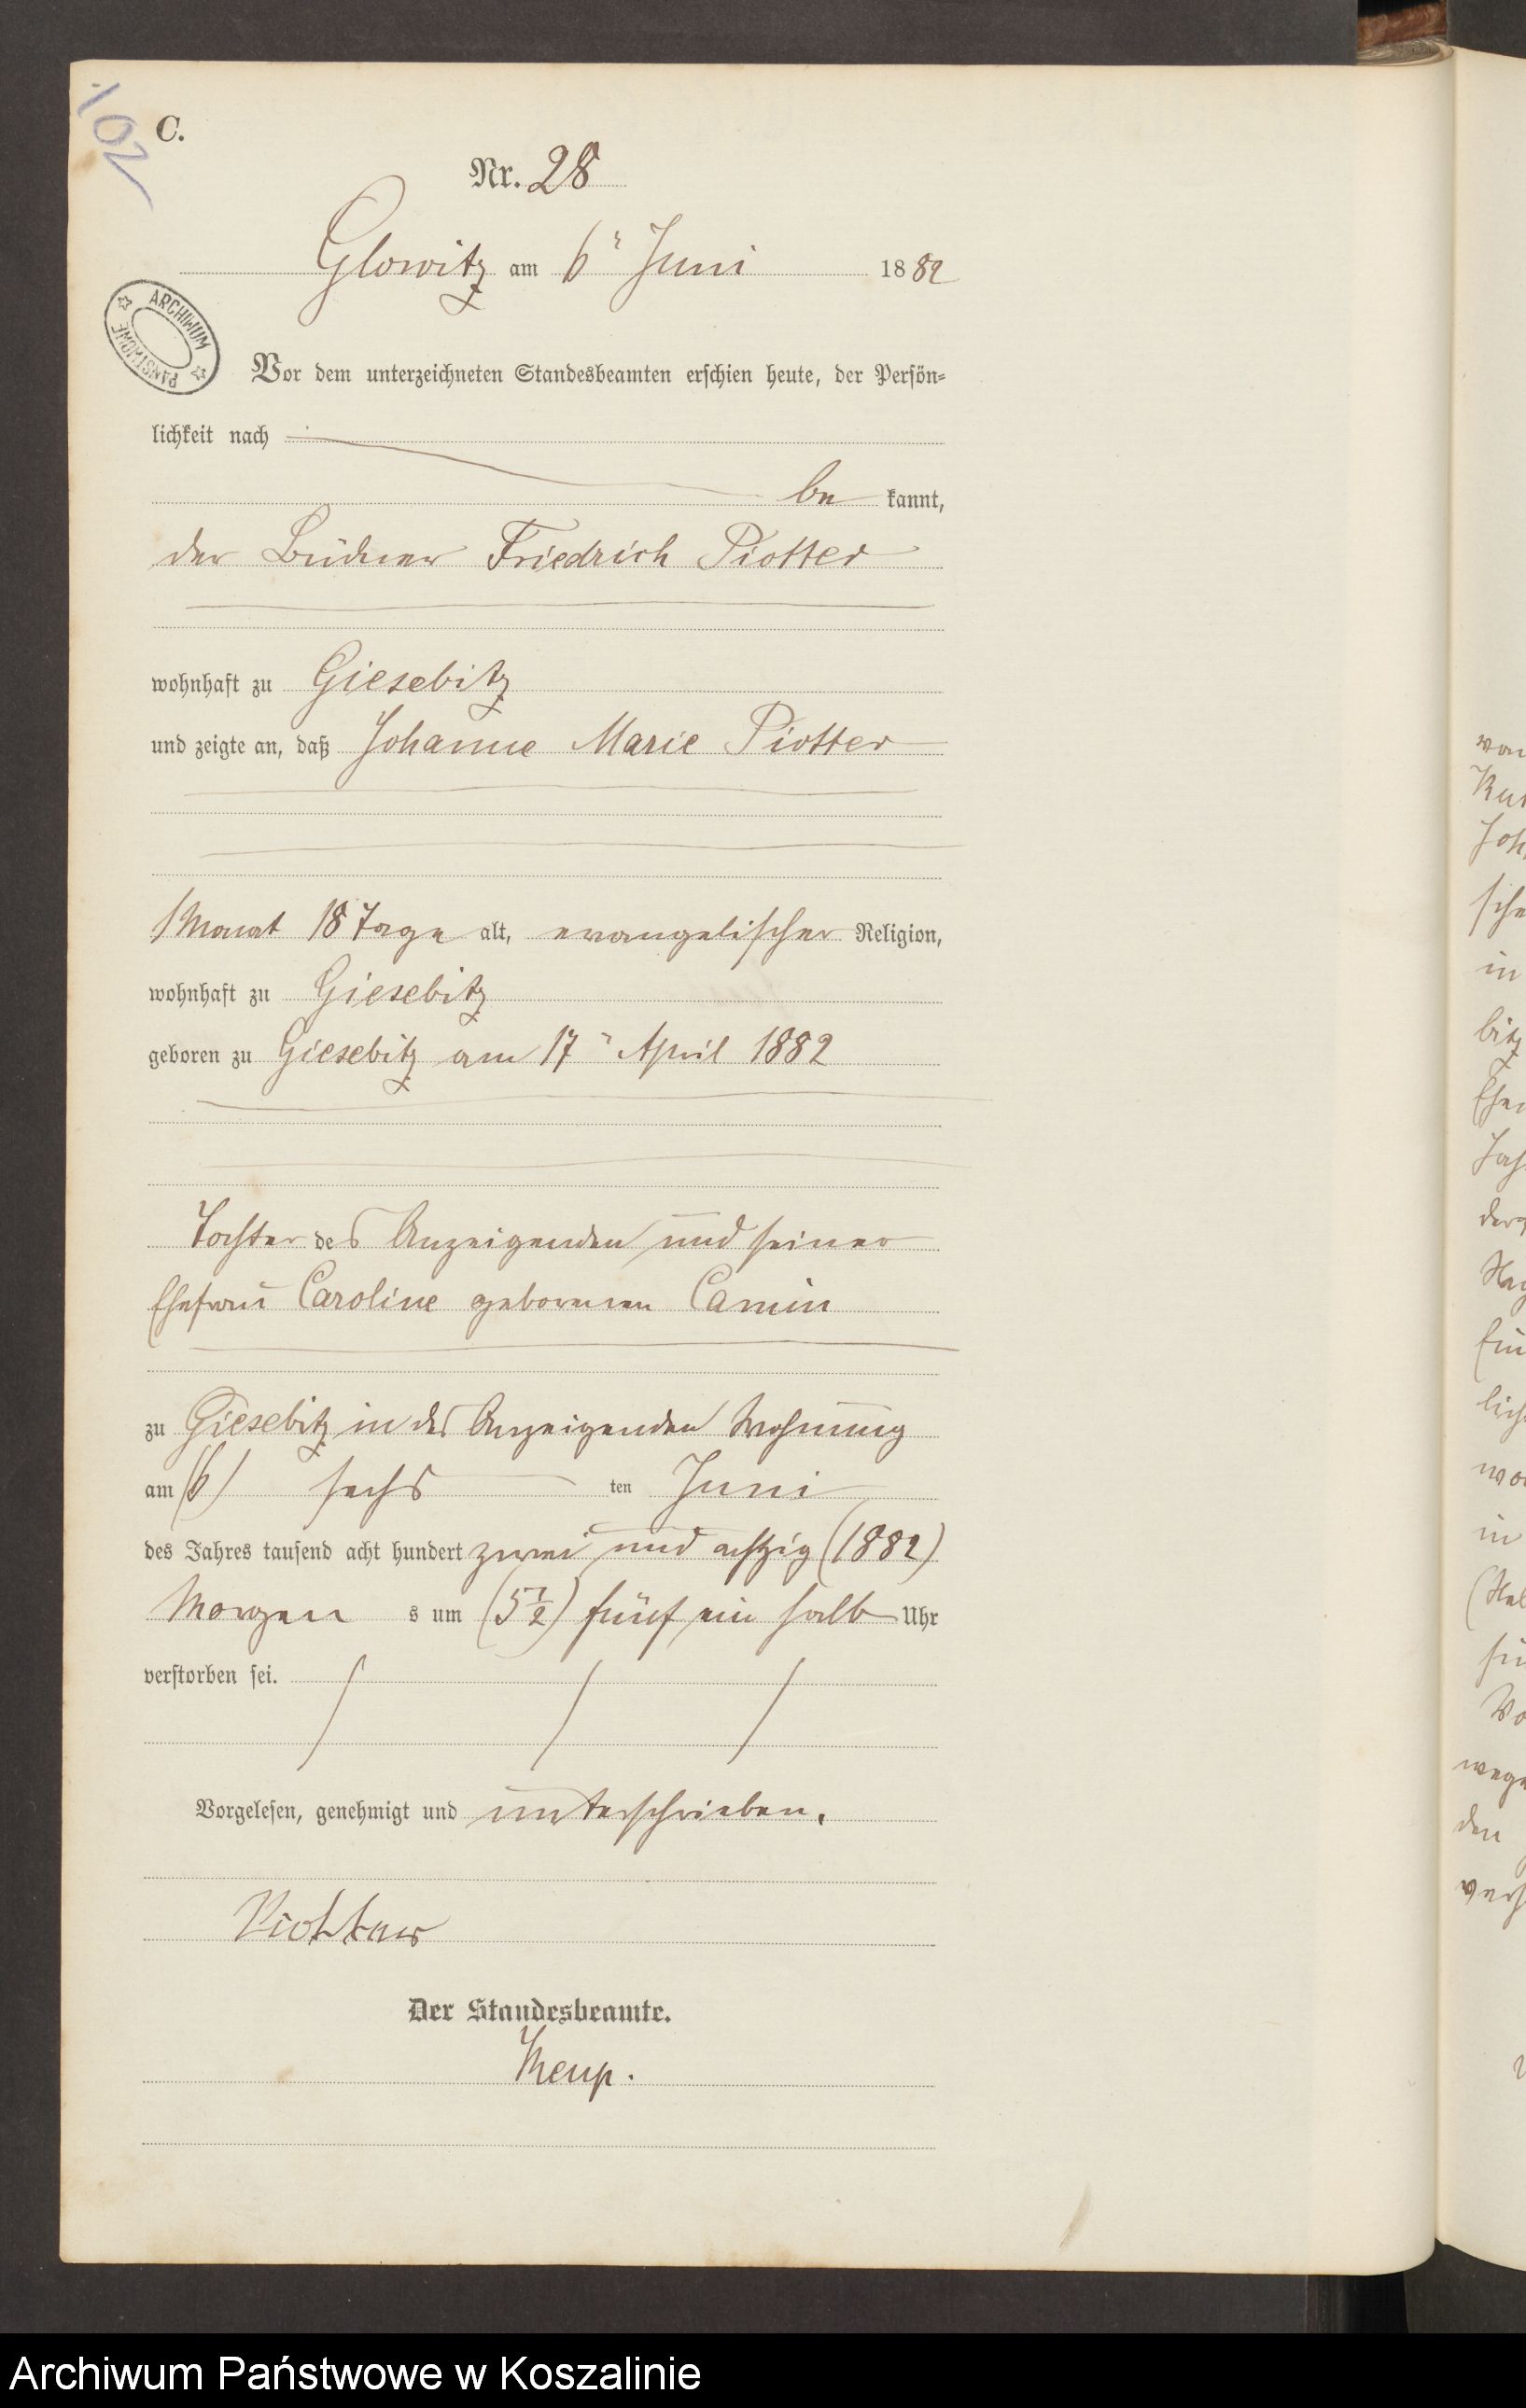 102
C.
Nr. 28
Glowitz am 6ᵗ Juni 1882
ARCHIWUM PAŃSTWOWE
Vor dem unterzeichneten Standesbeamten erschien heute, der Persön-
lichkeit nach
be kannt,
der Büdner Friedrich Piotter
wohnhaft zu Giesebitz
und zeigte an, daß Johanne Marie Piotter
1 Monat 18 Tage alt, evangelischer Religion,
wohnhaft zu Giesebitz
geboren zu Giesebitz am 17ᵗ April 1882
Tochter des Anzeigenden und seiner
Ehefrau Caroline geborenen Camin
zu Giesebitz in des Anzeigenden Wohnung
am (6) sechs ten Juni
des Jahres tausend acht hundert zwei und achtzig (1882)
Morgen s um (5½) fünf ein halb Uhr
verstorben sei.
Vorgelesen, genehmigt und unterschrieben.
Piotter
Der Standesbeamte.
Keup.
von
Joh
sche
in
bitz
Ehe
den
in
den
Archiwum Państwowe w Koszalinie